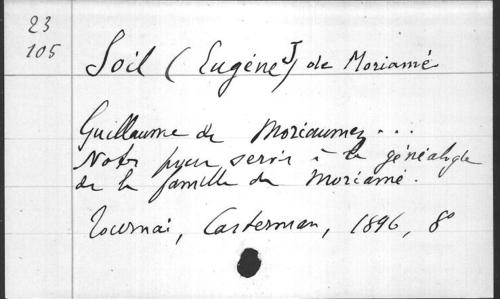 23
105
Soil (Eugène J) de Moriamé
Guillaume de Moriaumez...
Notes pour servir à la généalogie
de la famille de Moriamé.
Tournai, Casterman, 1896, 8°